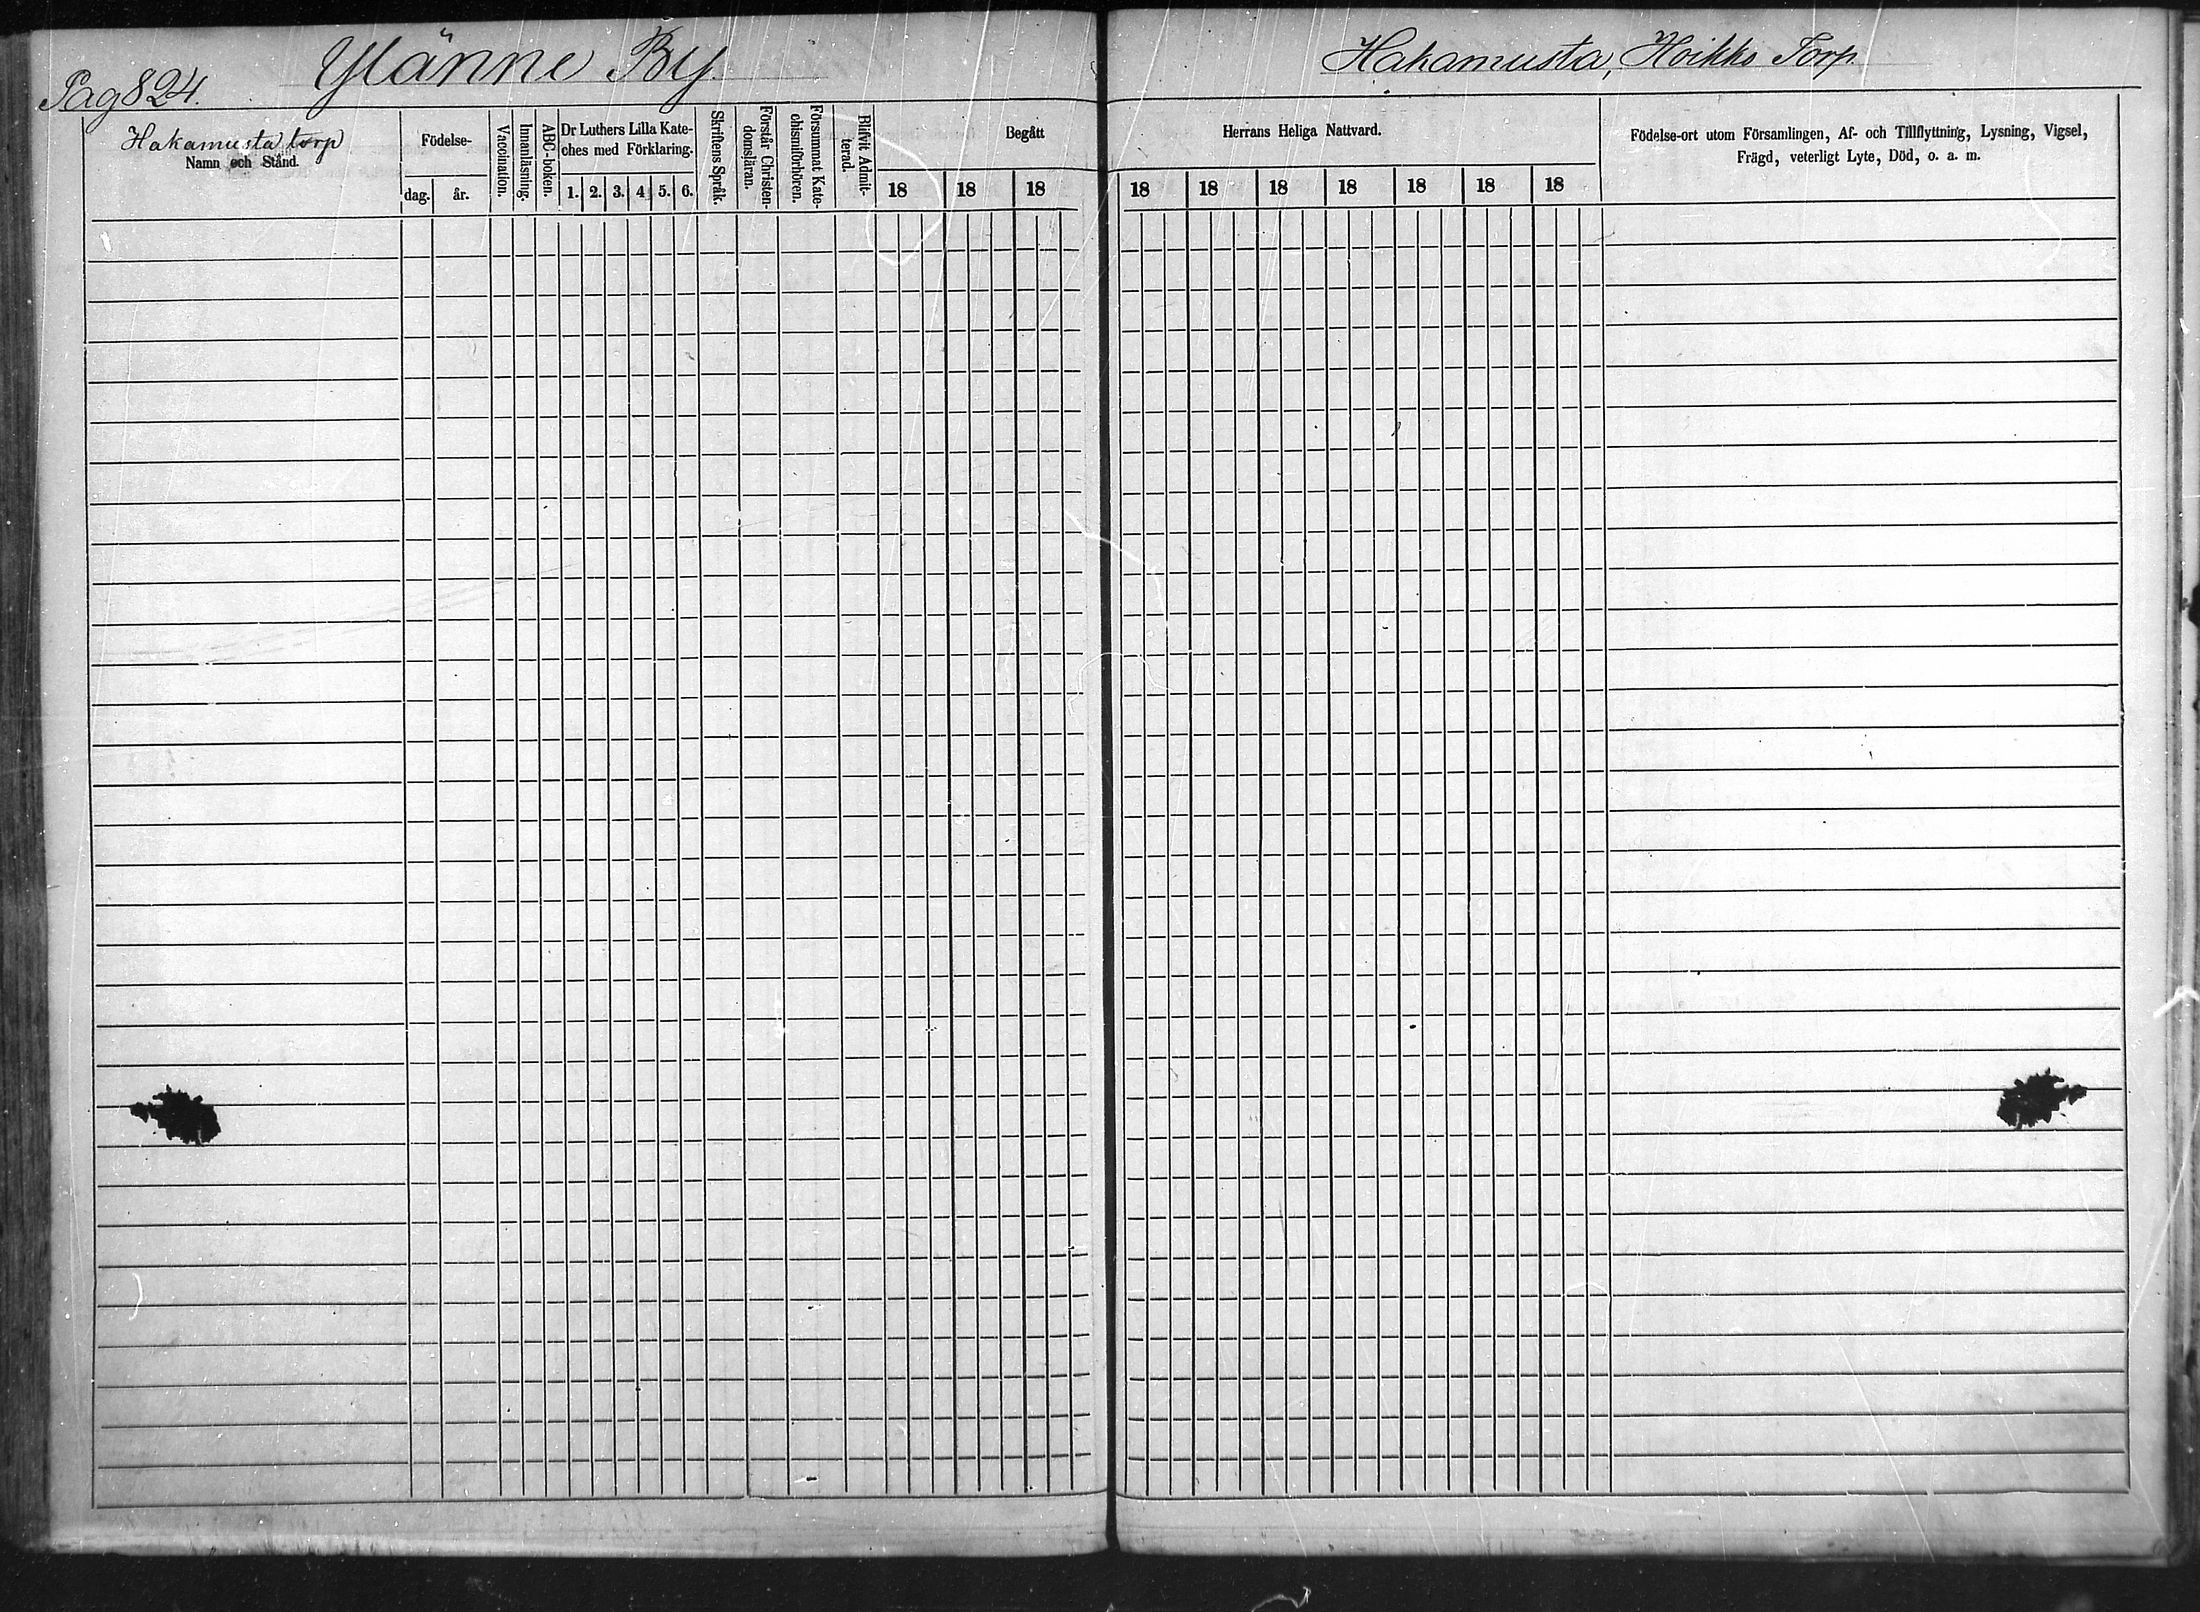 Pag 824.
Ylänne By.
Hakamusta, Hoikko Torp.
Hakamusta torp
Namn och Stånd.
Födelse-
dag.
år.
Vaccination.
Innanläsning.
ABC-boken.
Dr Luthers Lilla Kate-
ches med Förklaring.
1. 2. 3. 4 5. 6.
Skriftens Språk.
Förstår Christen-
domsläran.
Försummat Kate-
chismiförhören.
Blifvit Admit-
terad.
Begått
18 18 18
Herrans Heliga Nattvard.
18 18 18 18 18 18 18
Födelse-ort utom Församlingen, Af- och Tillflyttning, Lysning, Vigsel,
Frägd, veterligt Lyte, Död, o. a. m.